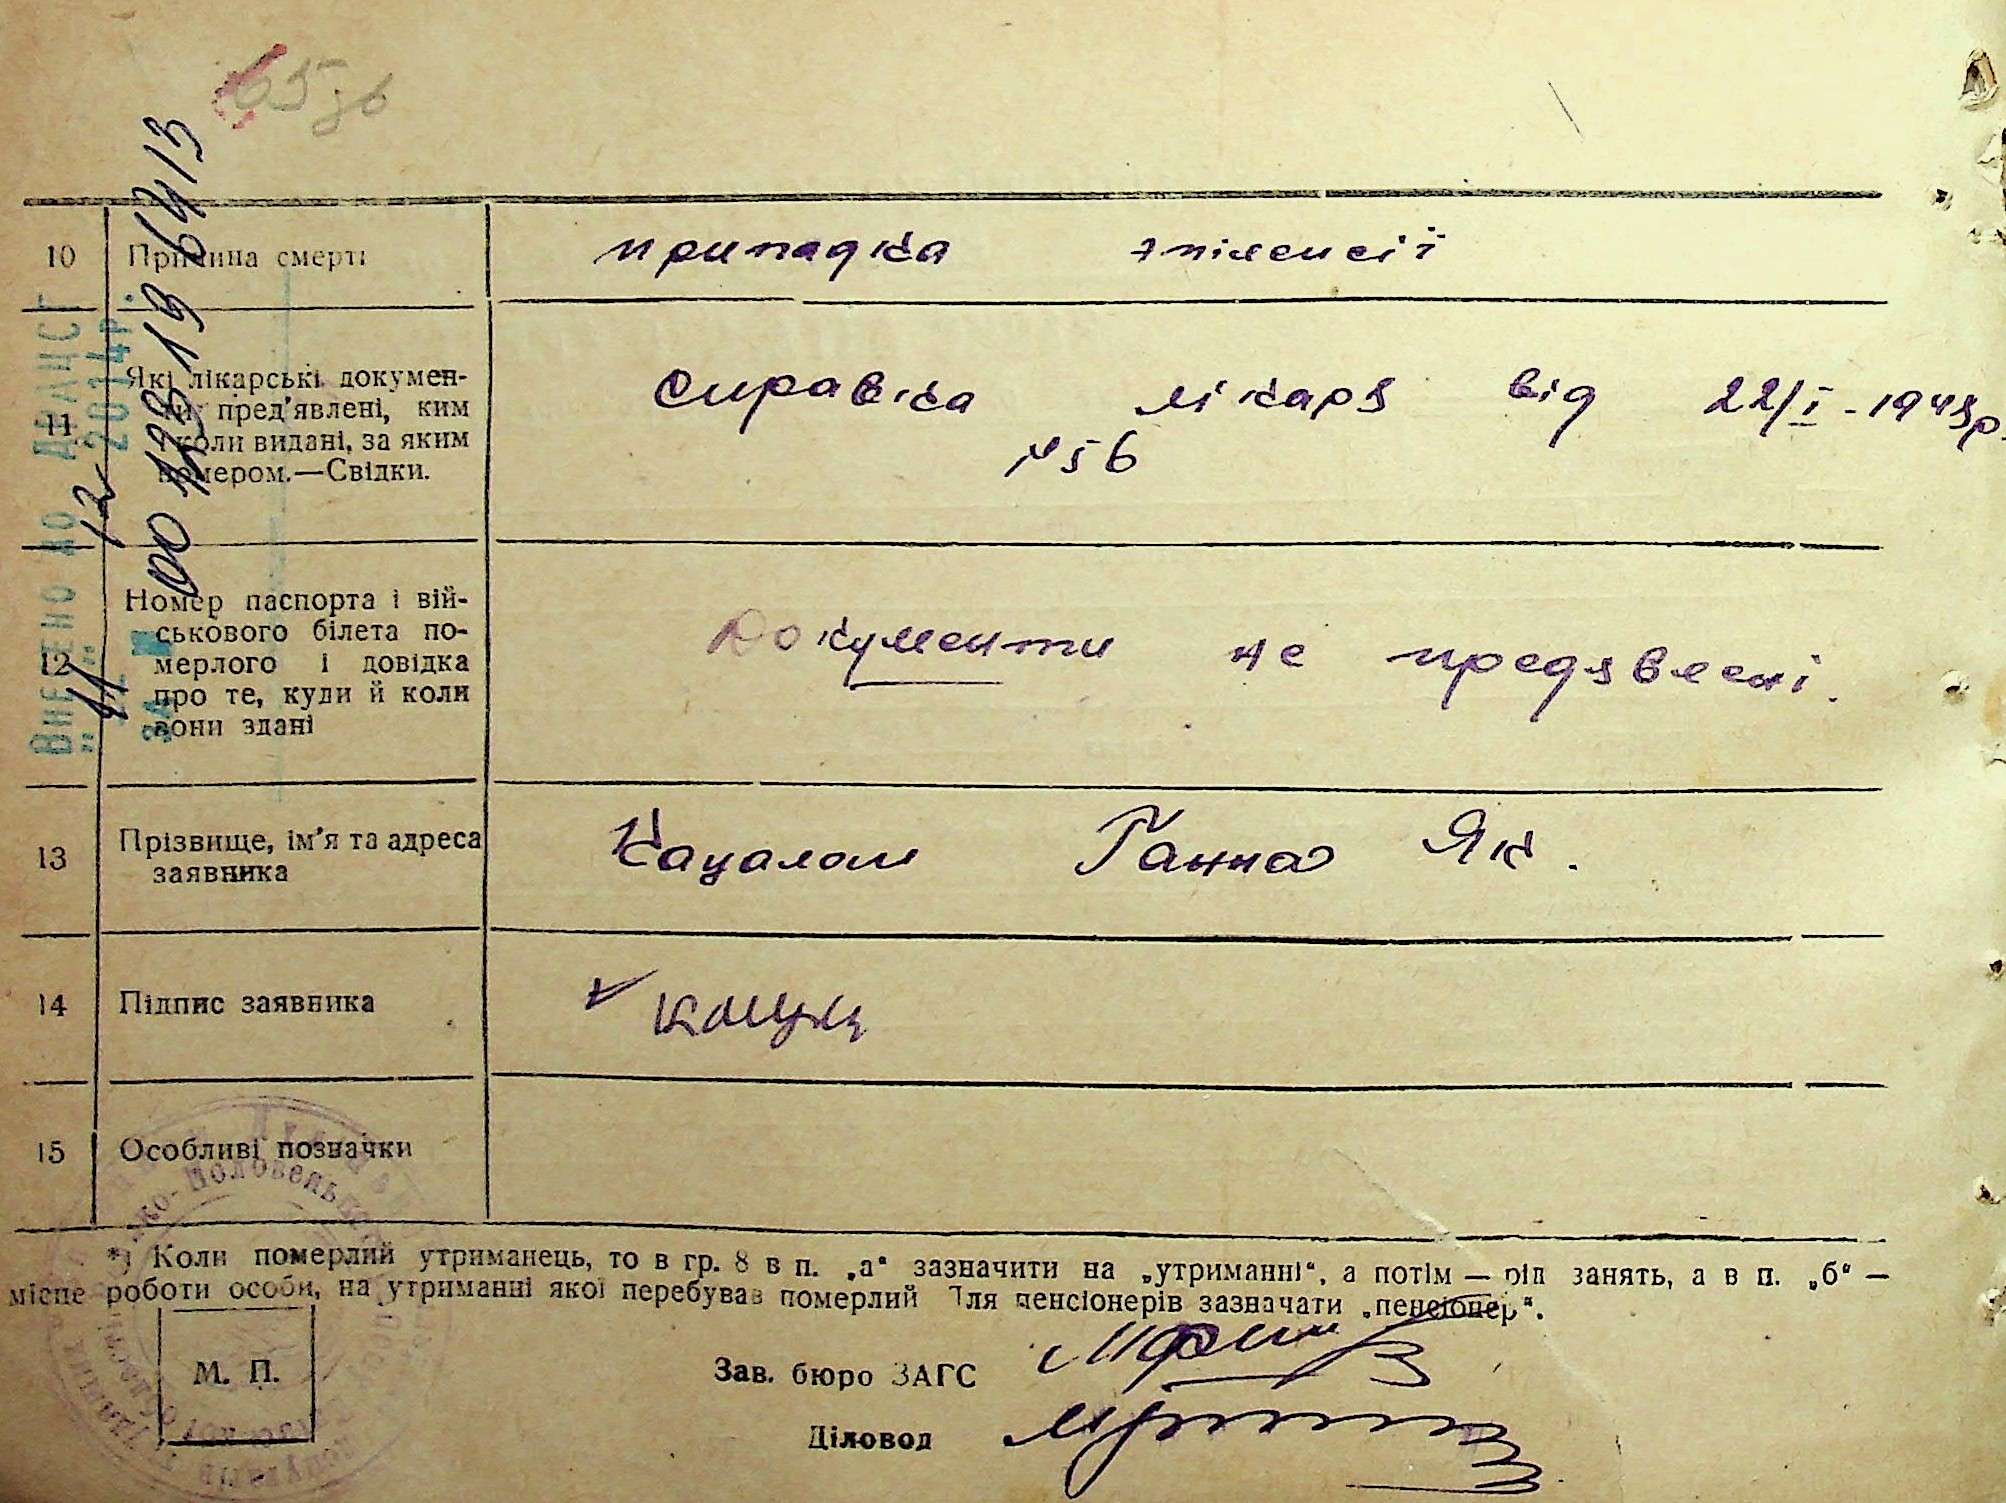 65 зв
10 Причина смерті припадка эпілепсії
11 Які лікарські докумен-
ти пред'явлені, ким
і коли видані, за яким
номером.—Свідки.
справка лікаря від 22/I-1945р.
№56
12 Номер паспорта і вій-
ськового білета по-
мерлого і довідка
про те, куди й коли
вони здані
Документи не предявлені.
13 Прізвище, ім'я та адреса
заявника
Кацалап Ганна Як.
14 Підпис заявника
15 Особливі позначки
Внесено до ДРАЦСГ
"11" 12 2014р.
за № 00112819 6413
*) Коли померлий утриманець, то в гр. 8 в п. „а“ зазначити на „утриманні“, а потім — рід занять, а в п. „б“ —
місце роботи особи, на утриманні якої перебував померлий Для пенсіонерів зазначати „пенсіонер“.
М. П.
Зав. бюро ЗАГС
Діловод